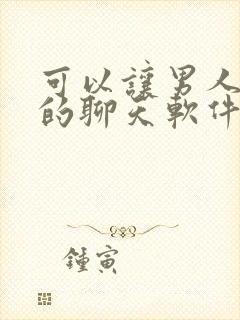 可以讓男人
的聊天軟件
鍾寅